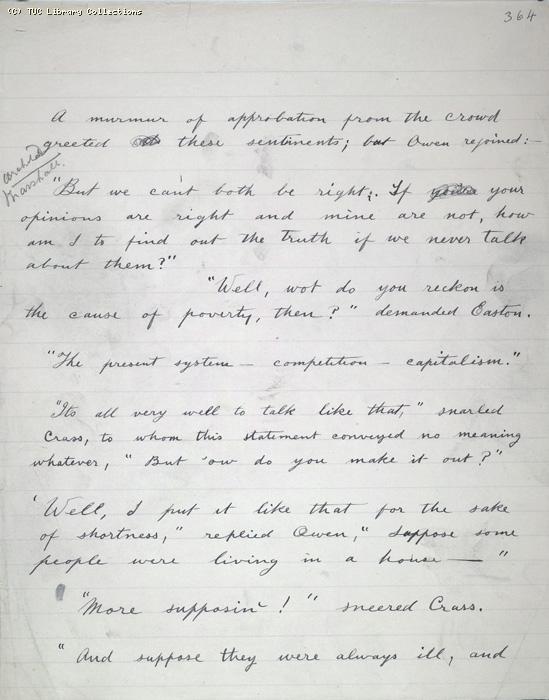 (C) TUC Library Collections
364
A murmur of approbation from the crowd
greeted these sentiments; but Owen rejoined:-
Marshall.
"But we can't both be right; If your
opinions are right and mine are not, how
am I to find out the truth if we never talk
about them?"
"Well, wot do you reckon is
the cause of poverty, then?" demanded Easton.
"The present system – competition – capitalism."
"Its all very well to talk like that," snarled
Crass, to whom this statement conveyed no meaning
whatever, "But 'ow do you make it out?"
'Well, I put it like that for the sake
of shortness," replied Owen, "suppose some
people were living in a house — "
"More supposin'!" sneered Crass.
"And suppose they were always ill, and